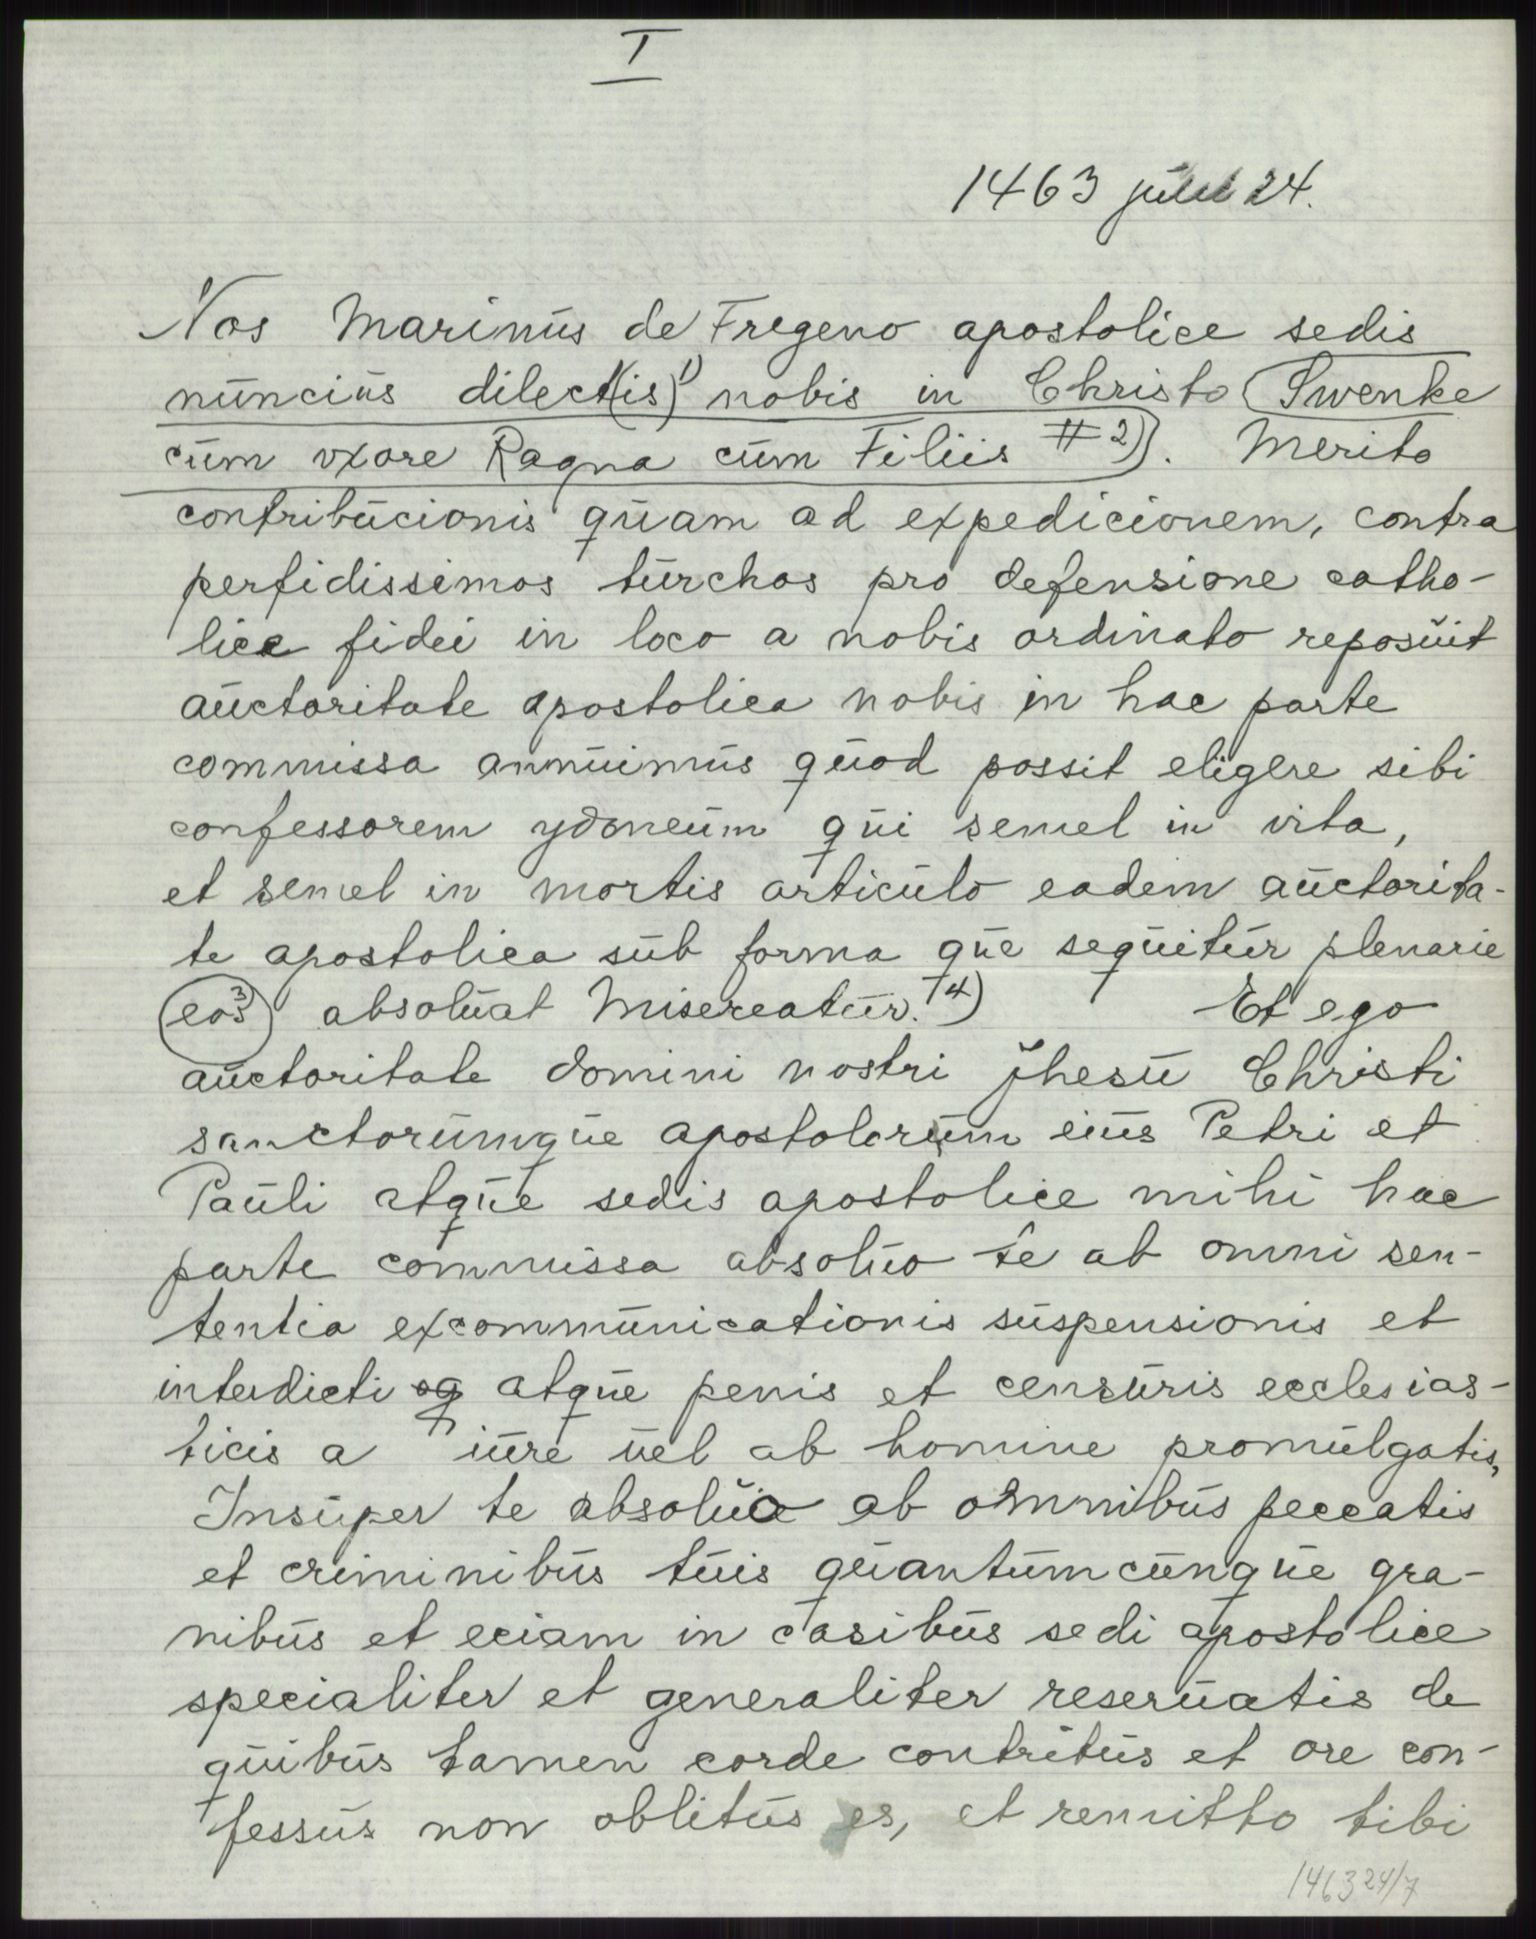 I
1463 juli 24.
Nos Marinus de Fregeno apostolice sedis
nuncius dilect(is)1) nobis in Christo (Swenke
cum vxore Ragna cum Filiis # 2)). Merito
contribucionis quam ad expedicionem, contra
perfidissimos turchos pro defensione catho-
lice fidei in loco a nobis ordinato reposuit
auctoritate apostolica nobis in hac parte
commissa annuimus quod possit eligere sibi
confessorem ydoneum qui semel in vita,
et semel in mortis articulo eadem auctorita-
te apostolica sub forma que sequitur plenarie
eos3) absoluat Misereatur. 4) Et ego
auctoritate domini nostri Jhesu Christi
sanctorumque apostolorum eius Petri et
Pauli atque sedis apostolice mihi hac
parte commissa absoluo te ab omni sen-
tentia excommunicationis suspensionis et
interdicti atque penis et censuris ecclesias-
ticis a iure uel ab homine promulgatis,
Insuper te absoluo ab omnibus peccatis
et criminibus tuis quantumcunque gra-
nibus et eciam in casibus sedi apostolice
specialiter et generaliter reseruatis de
quibus tamen corde contritus et ore con-
fessus non oblitus es, et remitto tibi
1463 24/7